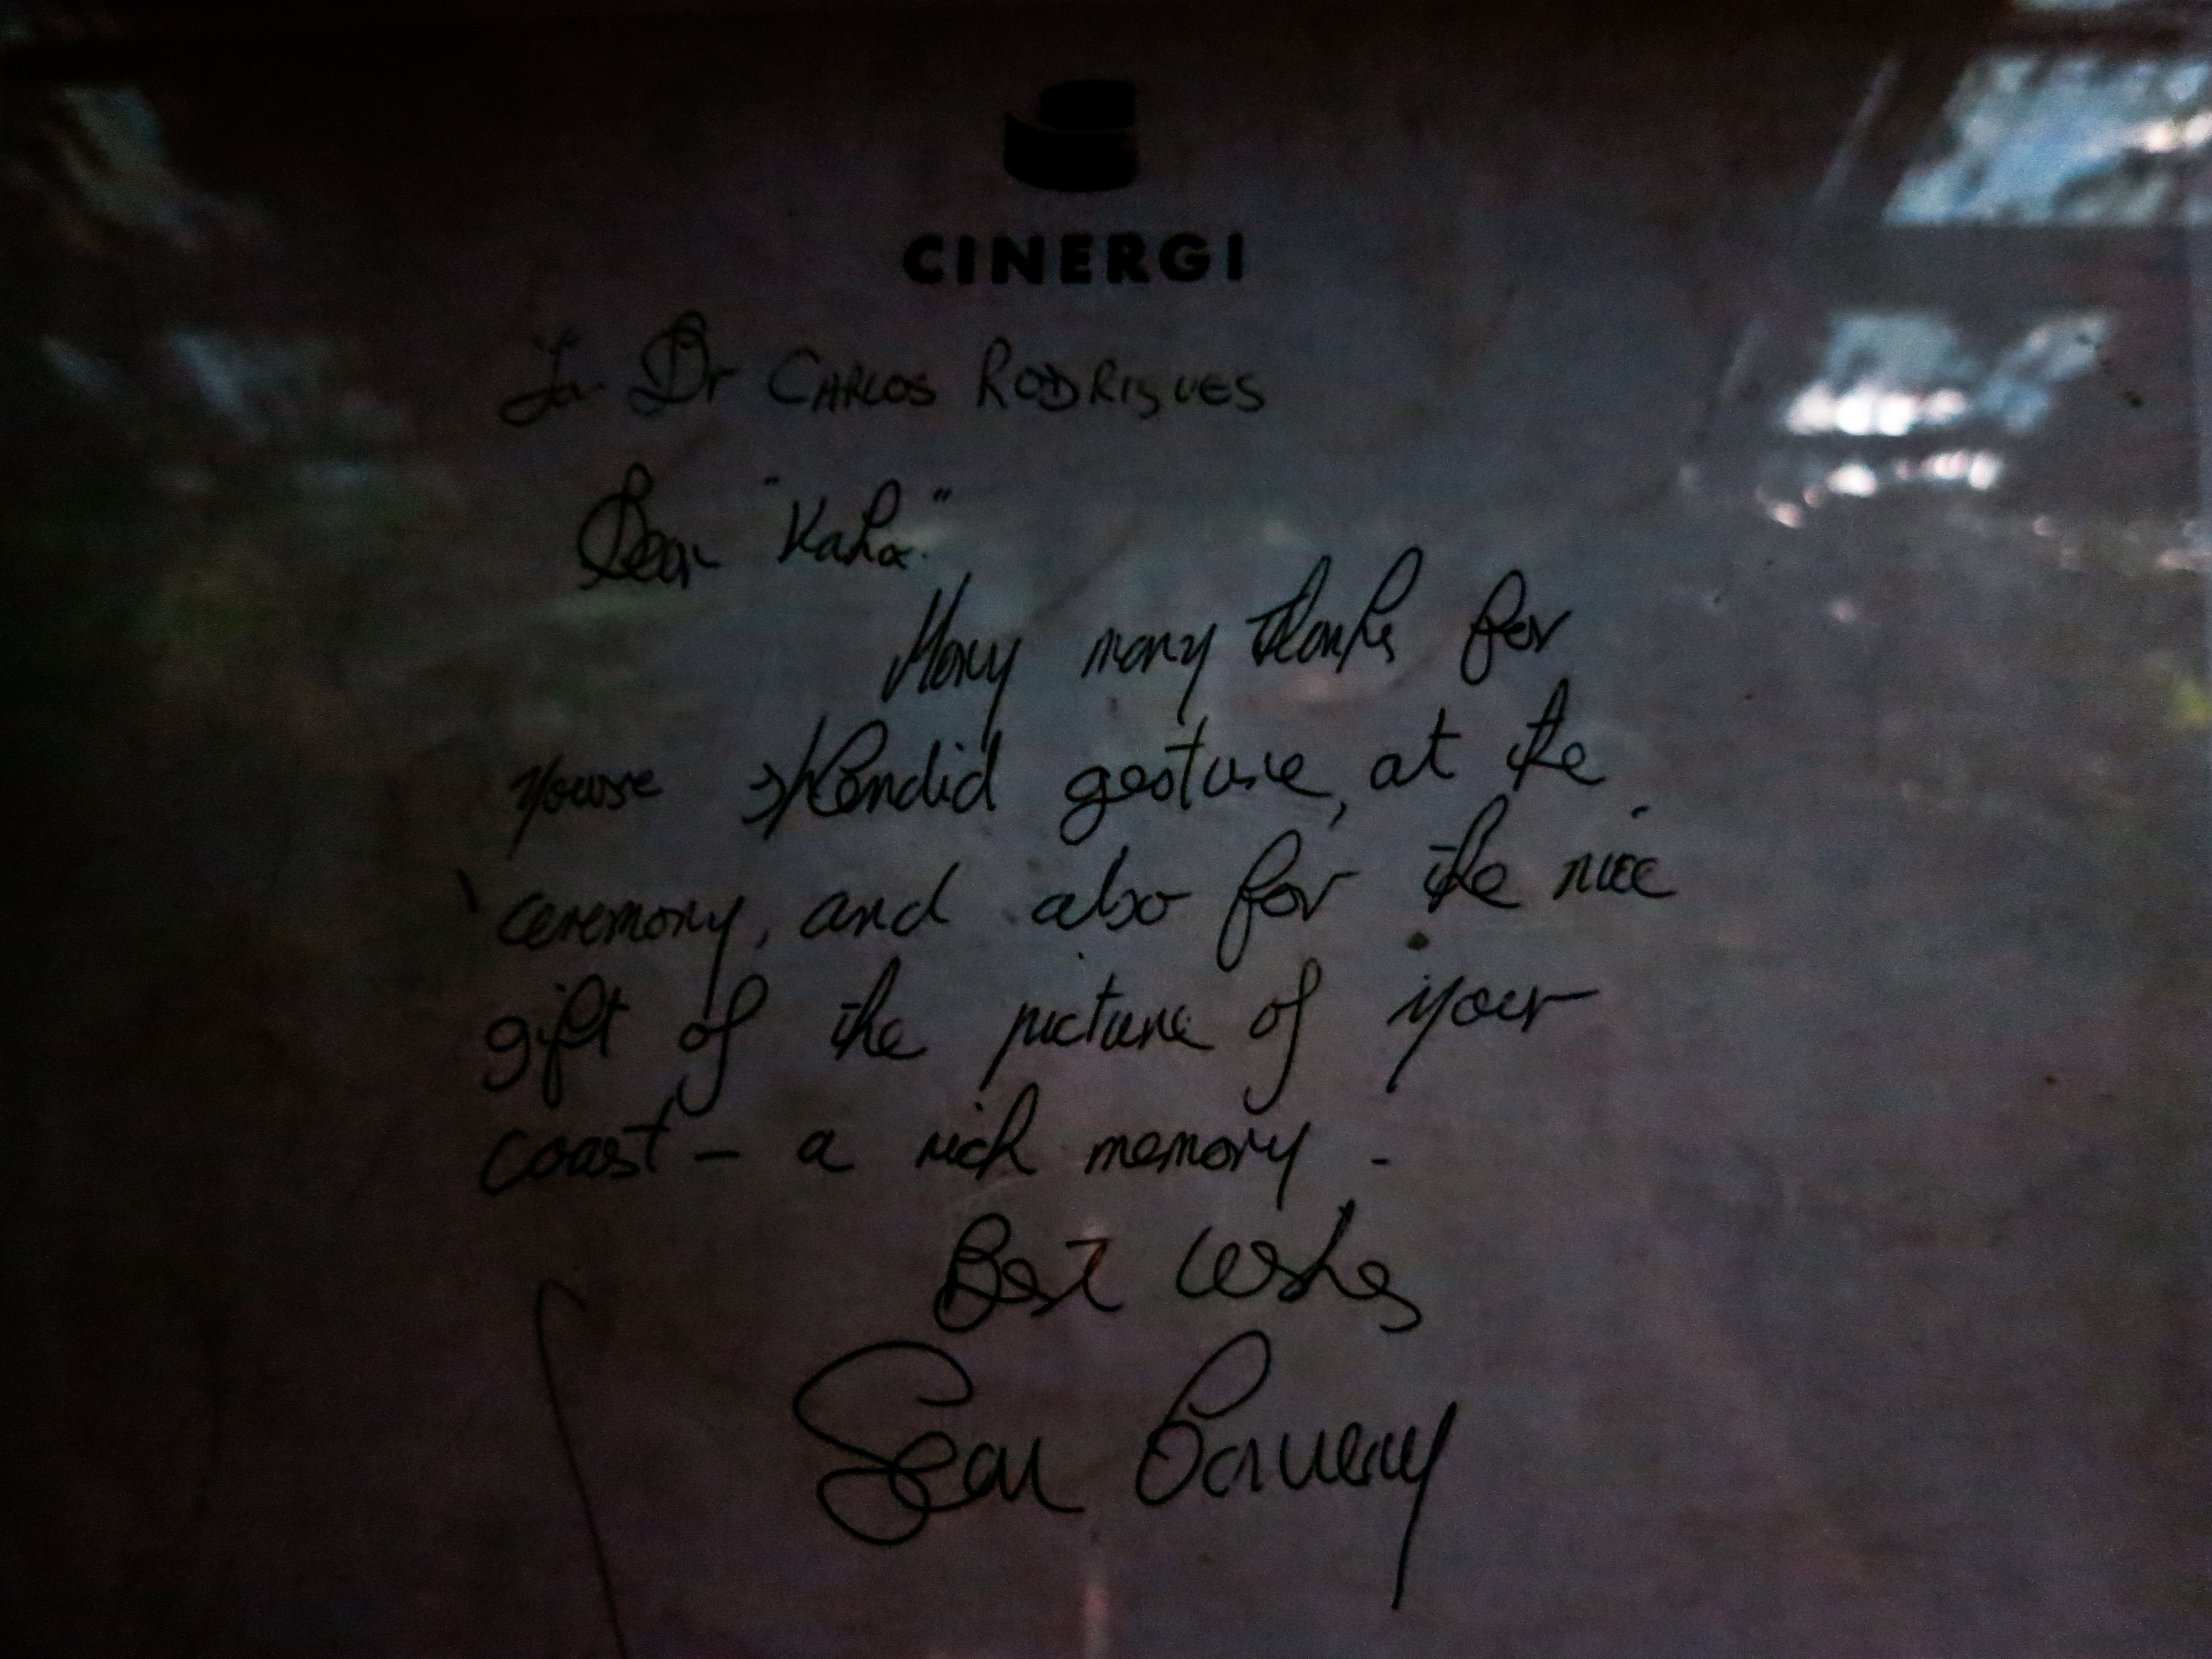 CINERGI
Dr CARLOS RODRIGUES
Dear "Kaka"
Many many thanks for
youre splendid gesture, at the
ceremony, and also for the nice
gift of the picture of your
coast - a rich memory -
Best wishes
Sean Connery